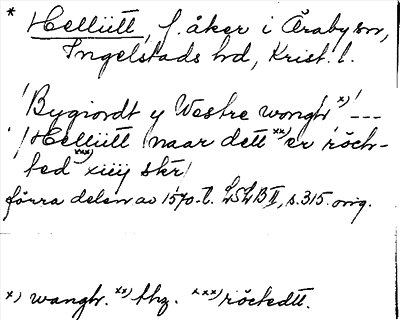 * Hellütt, f. åker i Åraby sn,
Ingelstads hd, Krist. l.
/Bygiordt y Westre wongh x) ---
/Hellütt naar dett xx) er röch-
ted xxx) xiiij skr/
förra delen av 1570-t. LSLB II, s. 315. orig.
x) wangh. xx) thz. xxx) röchedtt.